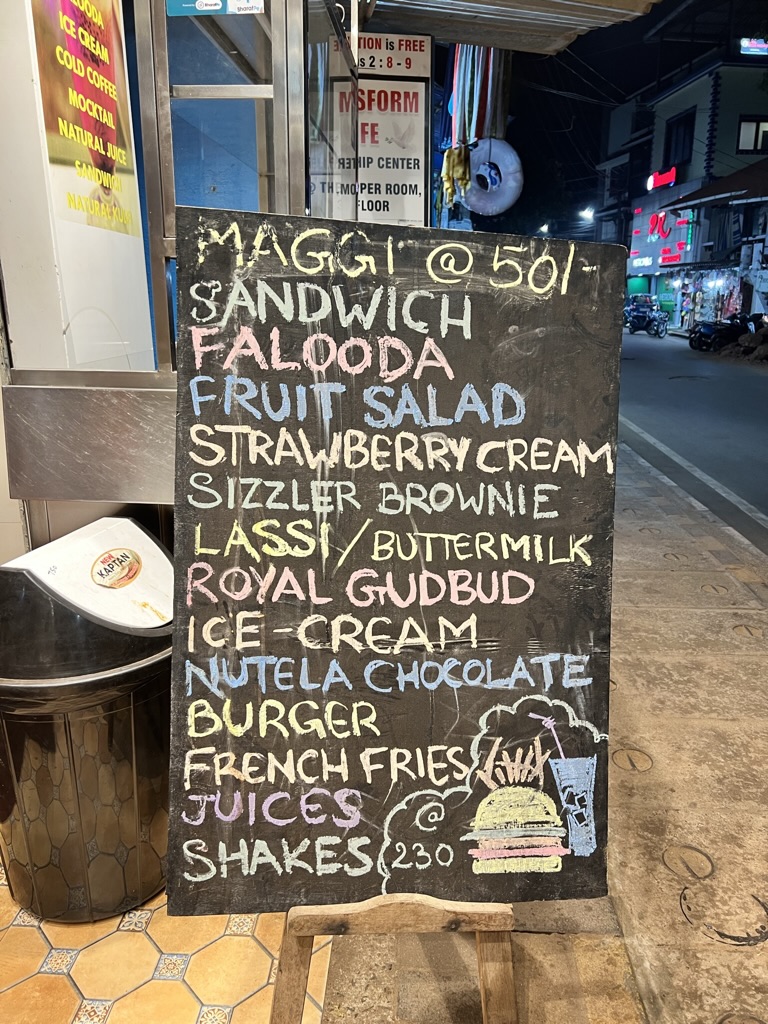 ICE CREAM
COLD COFFEE
MOCKTAIL
NATURAL JUICE
SANDWICH
NATURAL
TION is FREE
2 : 8 - 9
MSFORM
FE
HIP CENTER
PER ROOM,
FLOOR
MAGGI @ 50/-
SANDWICH
FALOODA
FRUIT SALAD
STRAWBERRY CREAM
SIZZLER BROWNIE
LASSI / BUTTERMILK
ROYAL GUDBUD
ICE-CREAM
NUTELA CHOCOLATE
BURGER
FRENCH FRIES
JUICES
SHAKES
@
230
KAPTAN